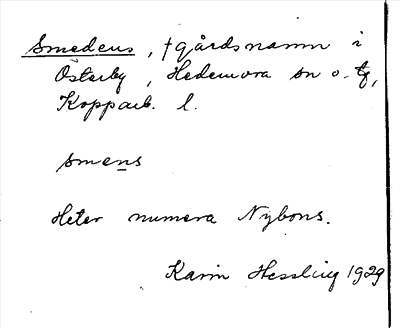 Smedens, †gårdsnamn i
Österby, Hedemora sn o. tg,
Kopparb. l.
smens
Heter numera Nybons.
Karin Hessling 1929